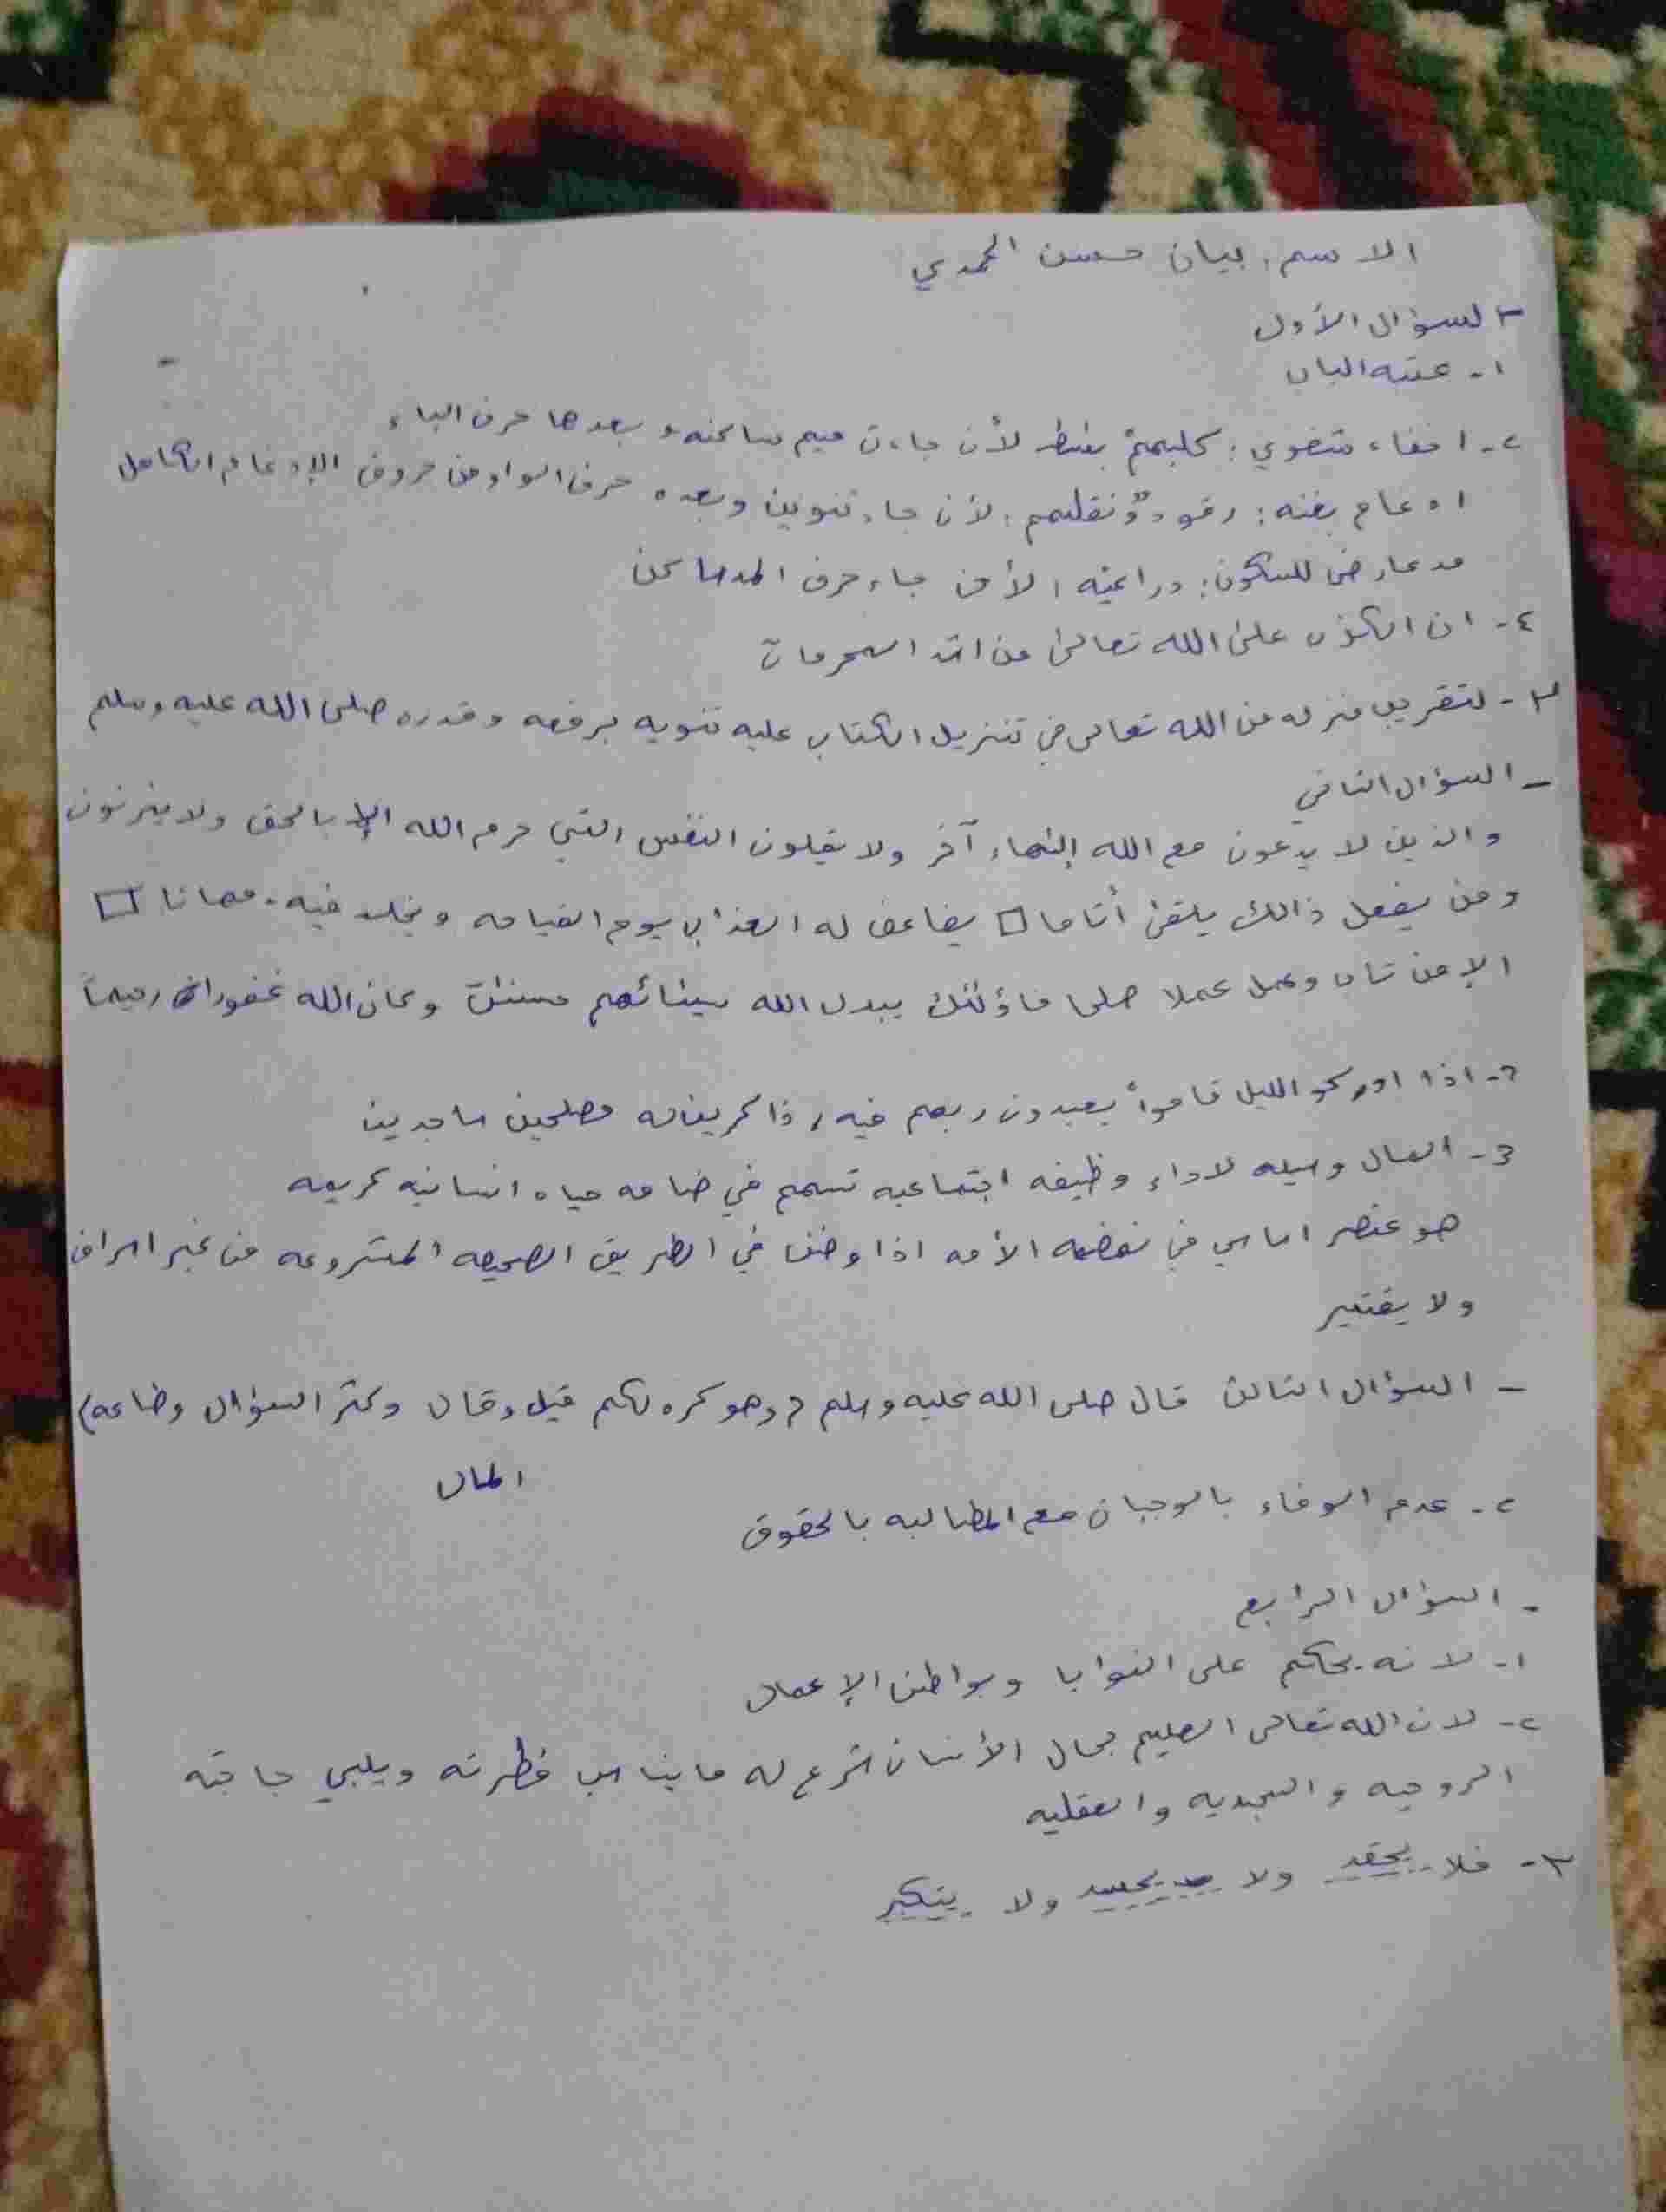 الاسم: بيان حسن المحمدي
- السؤال الأول
١- عتبه الباب
٢- اخفاء شفوي: كلبهمْ بسط لأن جاءت ميم ساكنه و بعدها حرف الباء
ادغام بغنه: رقودٌ ونقلبهم: لأن جاء تنوين وبعده حرف الواو من حروف الإدغام الكامل
مد عارض للسكون: ذراعيه: لأن جاء حرف المد ساكن
٤- ان الكذب على الله تعالى من اشد المحرمات
٣- لتقريب منزله من الله تعالى في تنزيل الكتاب عليه تنويه برفعه وقدره صلى الله عليه وسلم
- السؤال الثاني
والذين لا يدعون مع الله إلهاء آخر ولا يقلون النفس التي حرم الله الإ بالحق ولا يزنون
ومن يفعل ذالك يلقى أثاما □ يضاعف له العذاب يوم القيامه ويخلد فيه مهانا □
الإ من تاب وعمل عملا صلحا فاؤلئك يبدل الله سيئائهم حسنات وكان الله غفورا رحيماً
2- اذا ادركو الليل قاموا يعبدون ربهم فيه, ذاكرينه مصلحين ساجدين
3- المال وسيله لاداء وظيفه اجتماعيه تسهم في ضامه حياه انسانيه كريمه
هو عنصر اساسي في نهضه الأمه اذا وضف في الطريق الصحيحه المشروعه من غير اسراف
ولا يقتير
- السؤال الثالث قال صلى الله عليه وسلم (وهو كره لكم قيل وقال وكثر السؤال وضاعه)
المال
٢- عدم الوفاء بالوجبات مع المطالبه بالحقوق
- السؤال الرابع
١- لانه يحاكم على النوايا وبواطن الإعمال
٢- لان الله تعالى العليم بحال الأنسان شرع له ما يناسب فطرته ويلبي حاجته
الروحيه والجسديه والعقليه
٣- فلا يحقد ولا يحسد ولا يتكبر